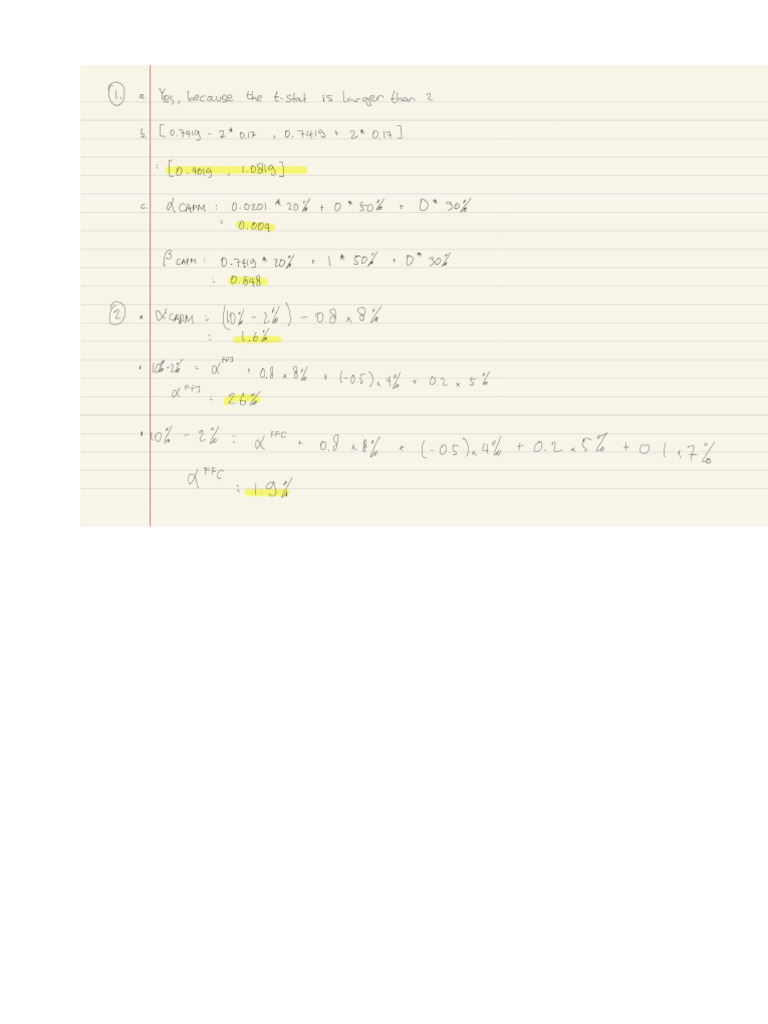 1. a. Yes, because the t-stat is larger than 2
b. [0.7419 - 2* 0.17 , 0.7419 + 2* 0.17]
= [0.4019 , 1.0819]
c. α CAPM : 0.0201 * 20% + 0 * 50% + 0 * 30%
= 0.004
β CAPM : 0.7419 * 20% + 1 * 50% + 0 * 30%
: 0.648
2. • α CAPM = (10% - 2%) - 0.8 × 8%
: 1.6%
• 10% - 2% = α FF3 + 0.8 × 8% + (-0.5) × 4% + 0.2 × 5%
α FF3 = 2.6%
• 10% - 2% : α FFC + 0.8 × 8% + (-0.5) × 4% + 0.2 × 5% + 0.1 × 7%
α FFC = 1.9%